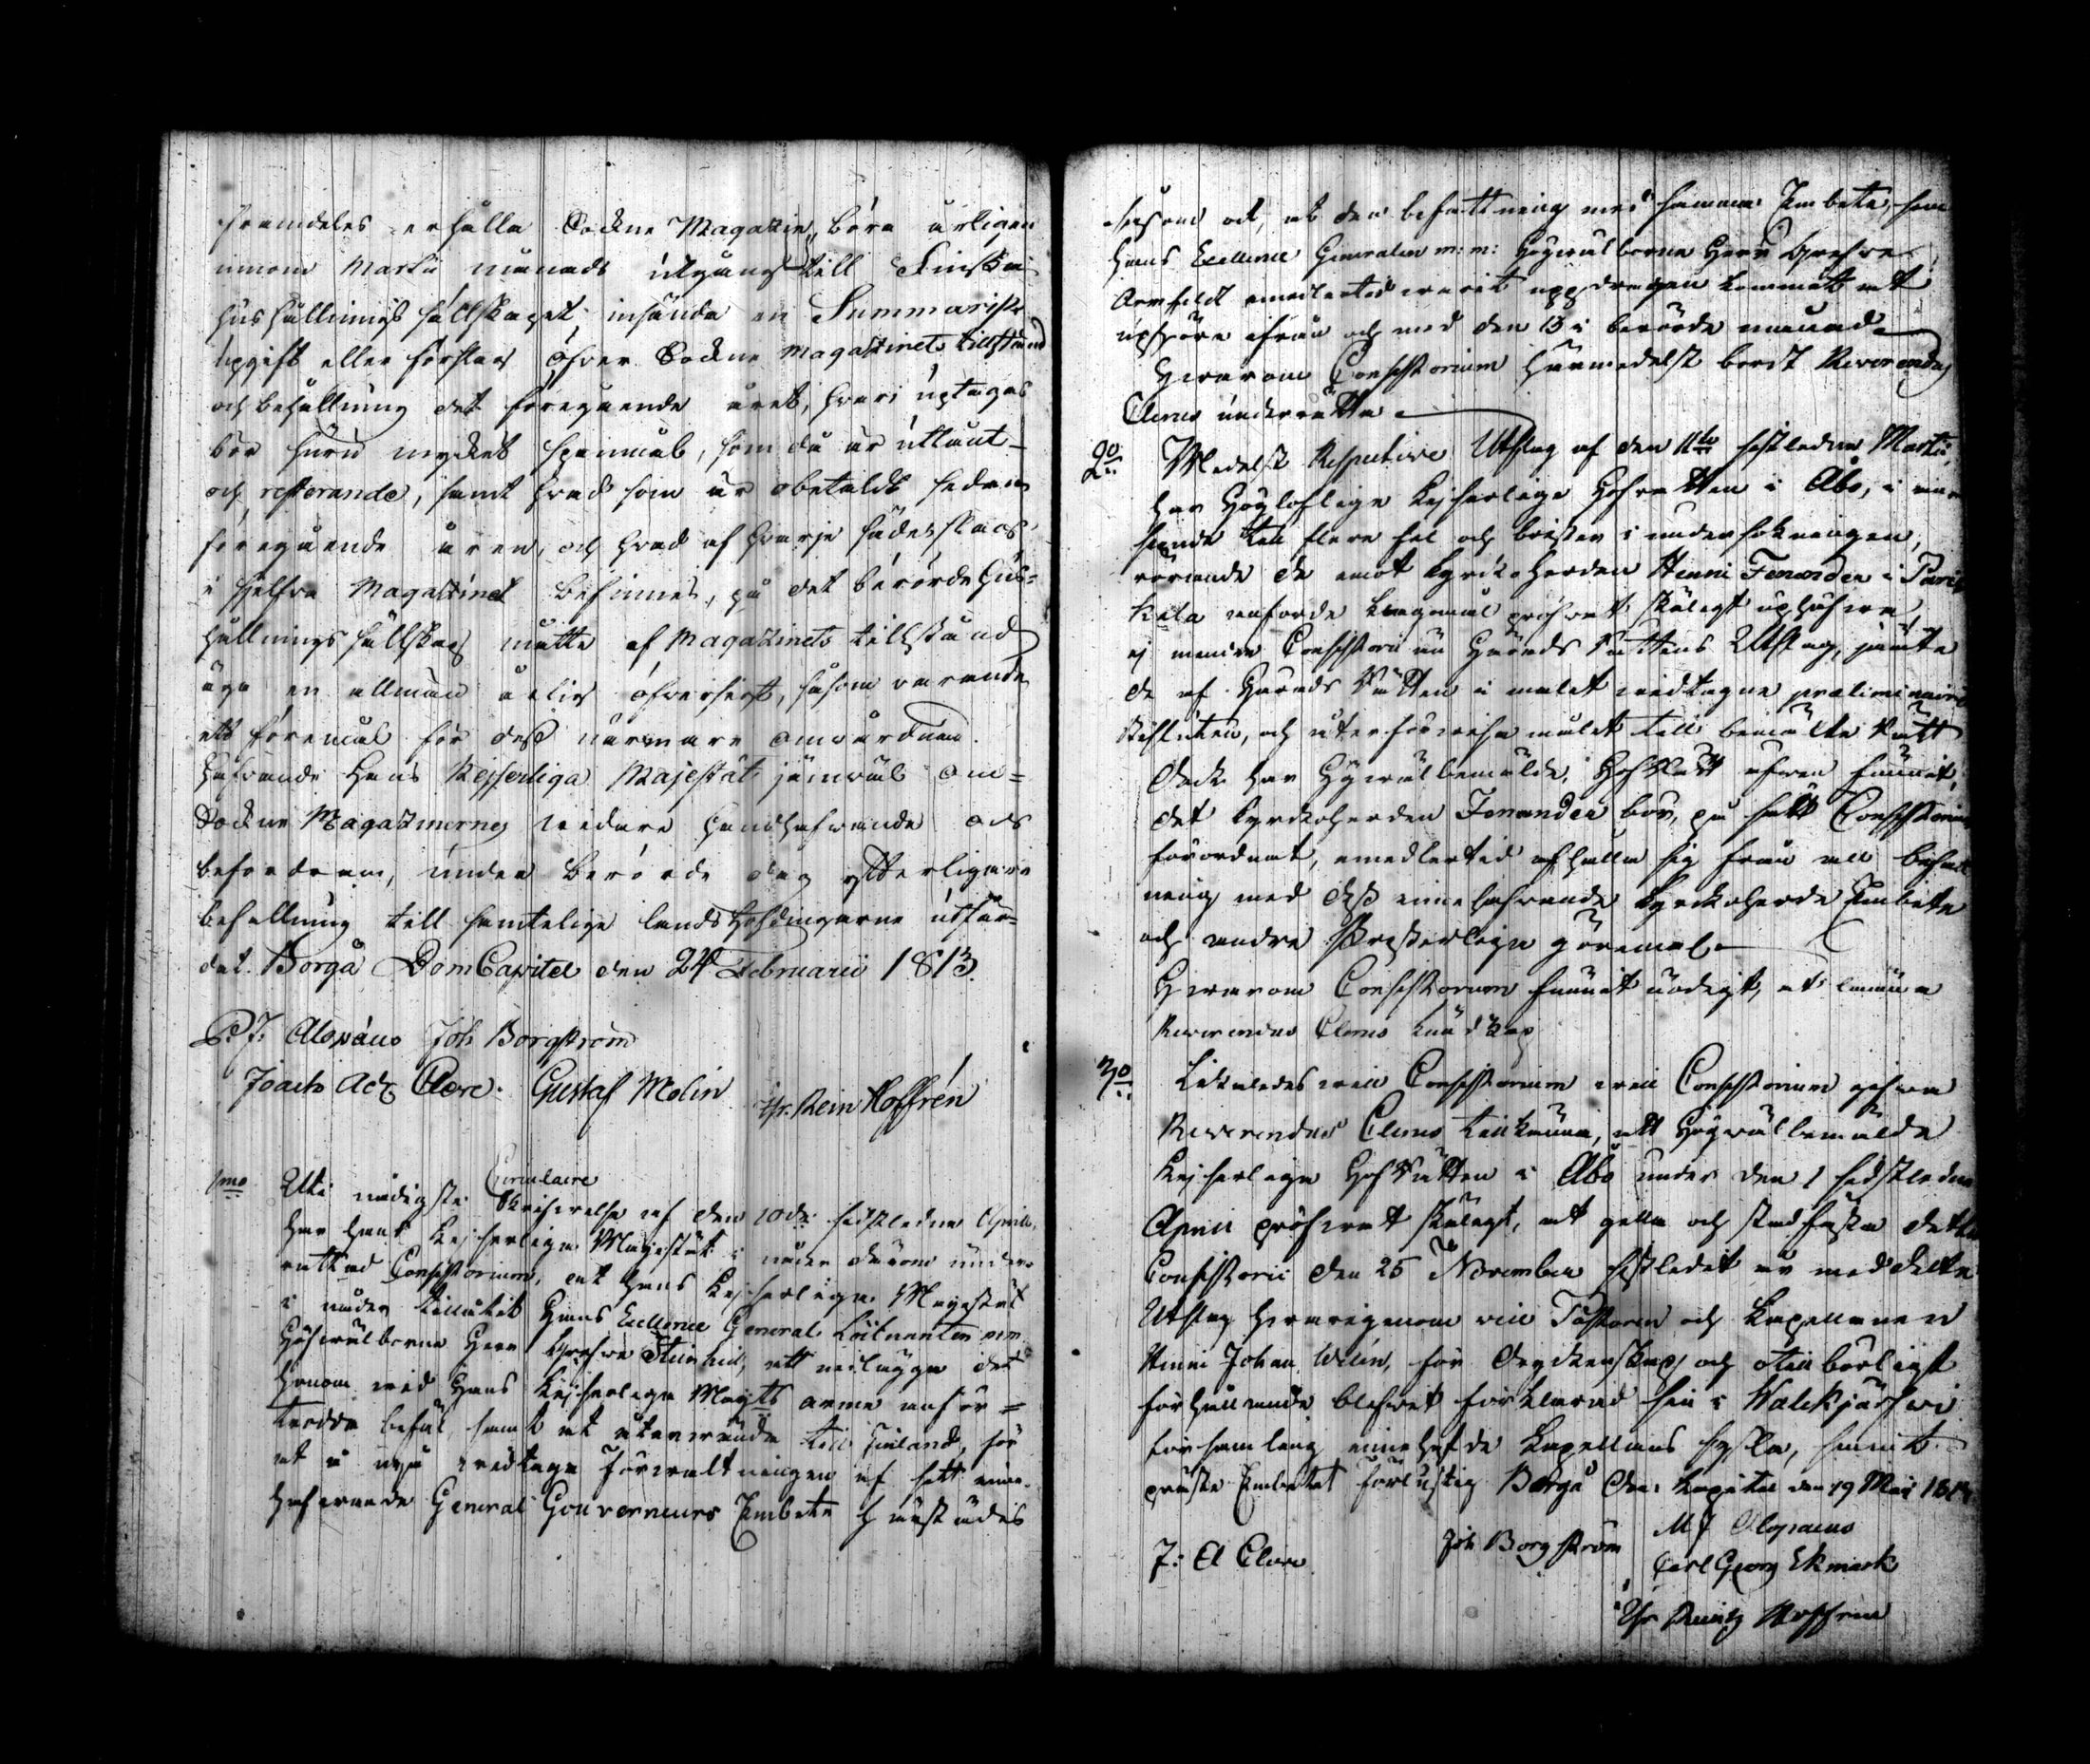 framdeles erhålla Sockne Magazin, böra årligen
innom Martii månads utgång till Finska
Hushållnings sällskapet insända en Summarisk
upgift eller förslag öfver Sockne magazinets tillstånd
och behållning det föregående året, hvari uptagas
bör huru mycket spanmål, som då är utlånt
och resterande, samt hvad som är obetaldt sedan
föregående åren, och hvad af hvarje sädesslag
i sjelfva Magazinet befinnes, på det berörde Hus=
hållnings sällskap måtte af Magazinets tillstånd
äga en allmän årlig öfversigt, såsom varande
ett föremål för dess närmare omvårdnad.
Hafvande Hans Kejserliga Majestät jämväl om
Sockne Magazinernes vidare handhafvande och
befordran, under berörde dag ytterligare
befallning till samtelige landshöfdingarne utfär=
dat. Borgå DomCapitel den 24 Februarii 1813.
Alopæus Joh Borgström
Joach Ad Clere. Gustaf Molin Rein Hoffrén
Circulaire
1mo Uti nådigste Skrifvelse af den 10de sidstledne Aprill,
har Hans Kejserliga Majestät i nåder därom under=
rättad Consistorium, at Hans Kejserliga Majestät
i nåder tillåtit Hans Excellence General Lieutnanten m.m.
Högvälborne Herr Grefve Steinheil, att nedlägga det
honom vid Hans Kejserliga Maj:ts arme anför=
trodde befäl, samt at återvända till Finland, för
at å nyo vidtaga förvaltningen af sitt inne=
hafvande General Gouverneurs Embete härstädes
såsom ock, at den befattning med samma Embete, som
Hans Excellence Generalen m: m: Högvälborne Herr Grefve
Armfeldt emedlertid varit uppdragen kommit att
uphöra ifrån och med den 13 i berörde månad
Hvarom Consistorium härmedelst bordt Reverendus
Clerus underrätta
2o Medelst Respective Utslag af den 11te sistledne Martii,
har Höglofliga Kejserliga Hofrätten i Åbo, i an=
seende till flere fel och brister i undersökningen,
rörande de emot Kyrkoherden Henric Fonander i Parik
kala anförde klagomål pröfvat skäligt uphäfva
ej mindre Consistorii än Härads Rättens Utslag, jämte
de af Härads Rätten i målet vidtagne præliminaire
Besluten, och återförvisa målet till bemälte Rätt
Dock har Högvälbemälde Hof Rätt äfven funnit,
det Kyrkoherden Fonander bör, på sätt Consistorium
förordnat, emedlertid afhålla sig från all befatt
ning med dess innehafvande Kyrkoherde Embete
och andre Presterliga göremål
Hvarom Consistorium funnit nödigt, at lämna
Reverendus Clerus kundskap
3o Likaledes vill Consistorium vill Consistorium gifva
Reverendus Clerus tillkänna, att Högvälbemälde
Kejserliga Hof Rätten i Åbo under den 1 sidstledne
April pröfvat skäligt, at gilla och stadfästa detta
Consistorii den 25 November sistledit år meddelte
Utslag hvarigenom vice Pastoren och Kapellanen
Henric Johan Welin, för Dryckenskap och otillbörligt
förhållande blifvit förklarad sin i Walkjärfvi
församling innehafde Kapellans syssla, samt
präste Embetet förlustig Borgå Dom Kapitel den 19 Maii 1813
M J Alopaeus
J: A Clere Joh Borgström Carl Georg Ekmark
Hoffrén